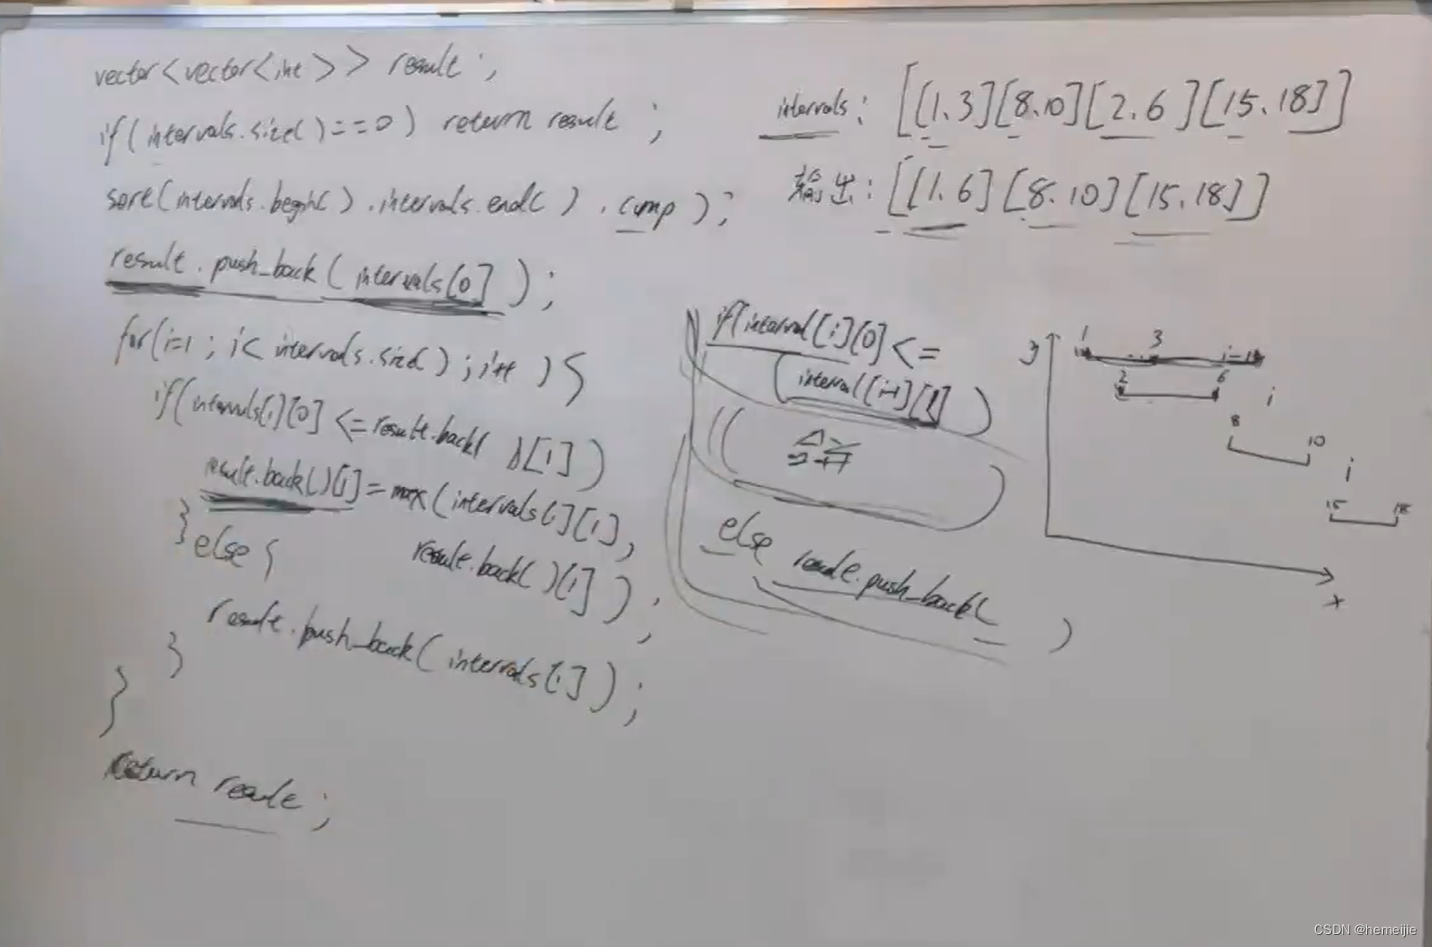 vector<vector<int>> result;
if(intervals.size()==0) return result;
sort(intervals.begin(),intervals.end(),cmp);
result.push_back(intervals[0]);
for(i=1; i<intervals.size(); i++){
if(intervals[i][0]<=result.back()[1])
result.back()[1]=max(intervals[i][1],
result.back()[1]);
}else{
result.push_back(intervals[i]);
}
}
return result;
intervals: [[1.3][8.10][2.6][15.18]]
输出: [[1.6][8.10][15.18]]
if(interval[i][0]<=
(interval[i-1][1])
合并
else result.push_back( )
y
1 3
2 6
i
8 10
i
15 18
x
CSDN @hemeijie